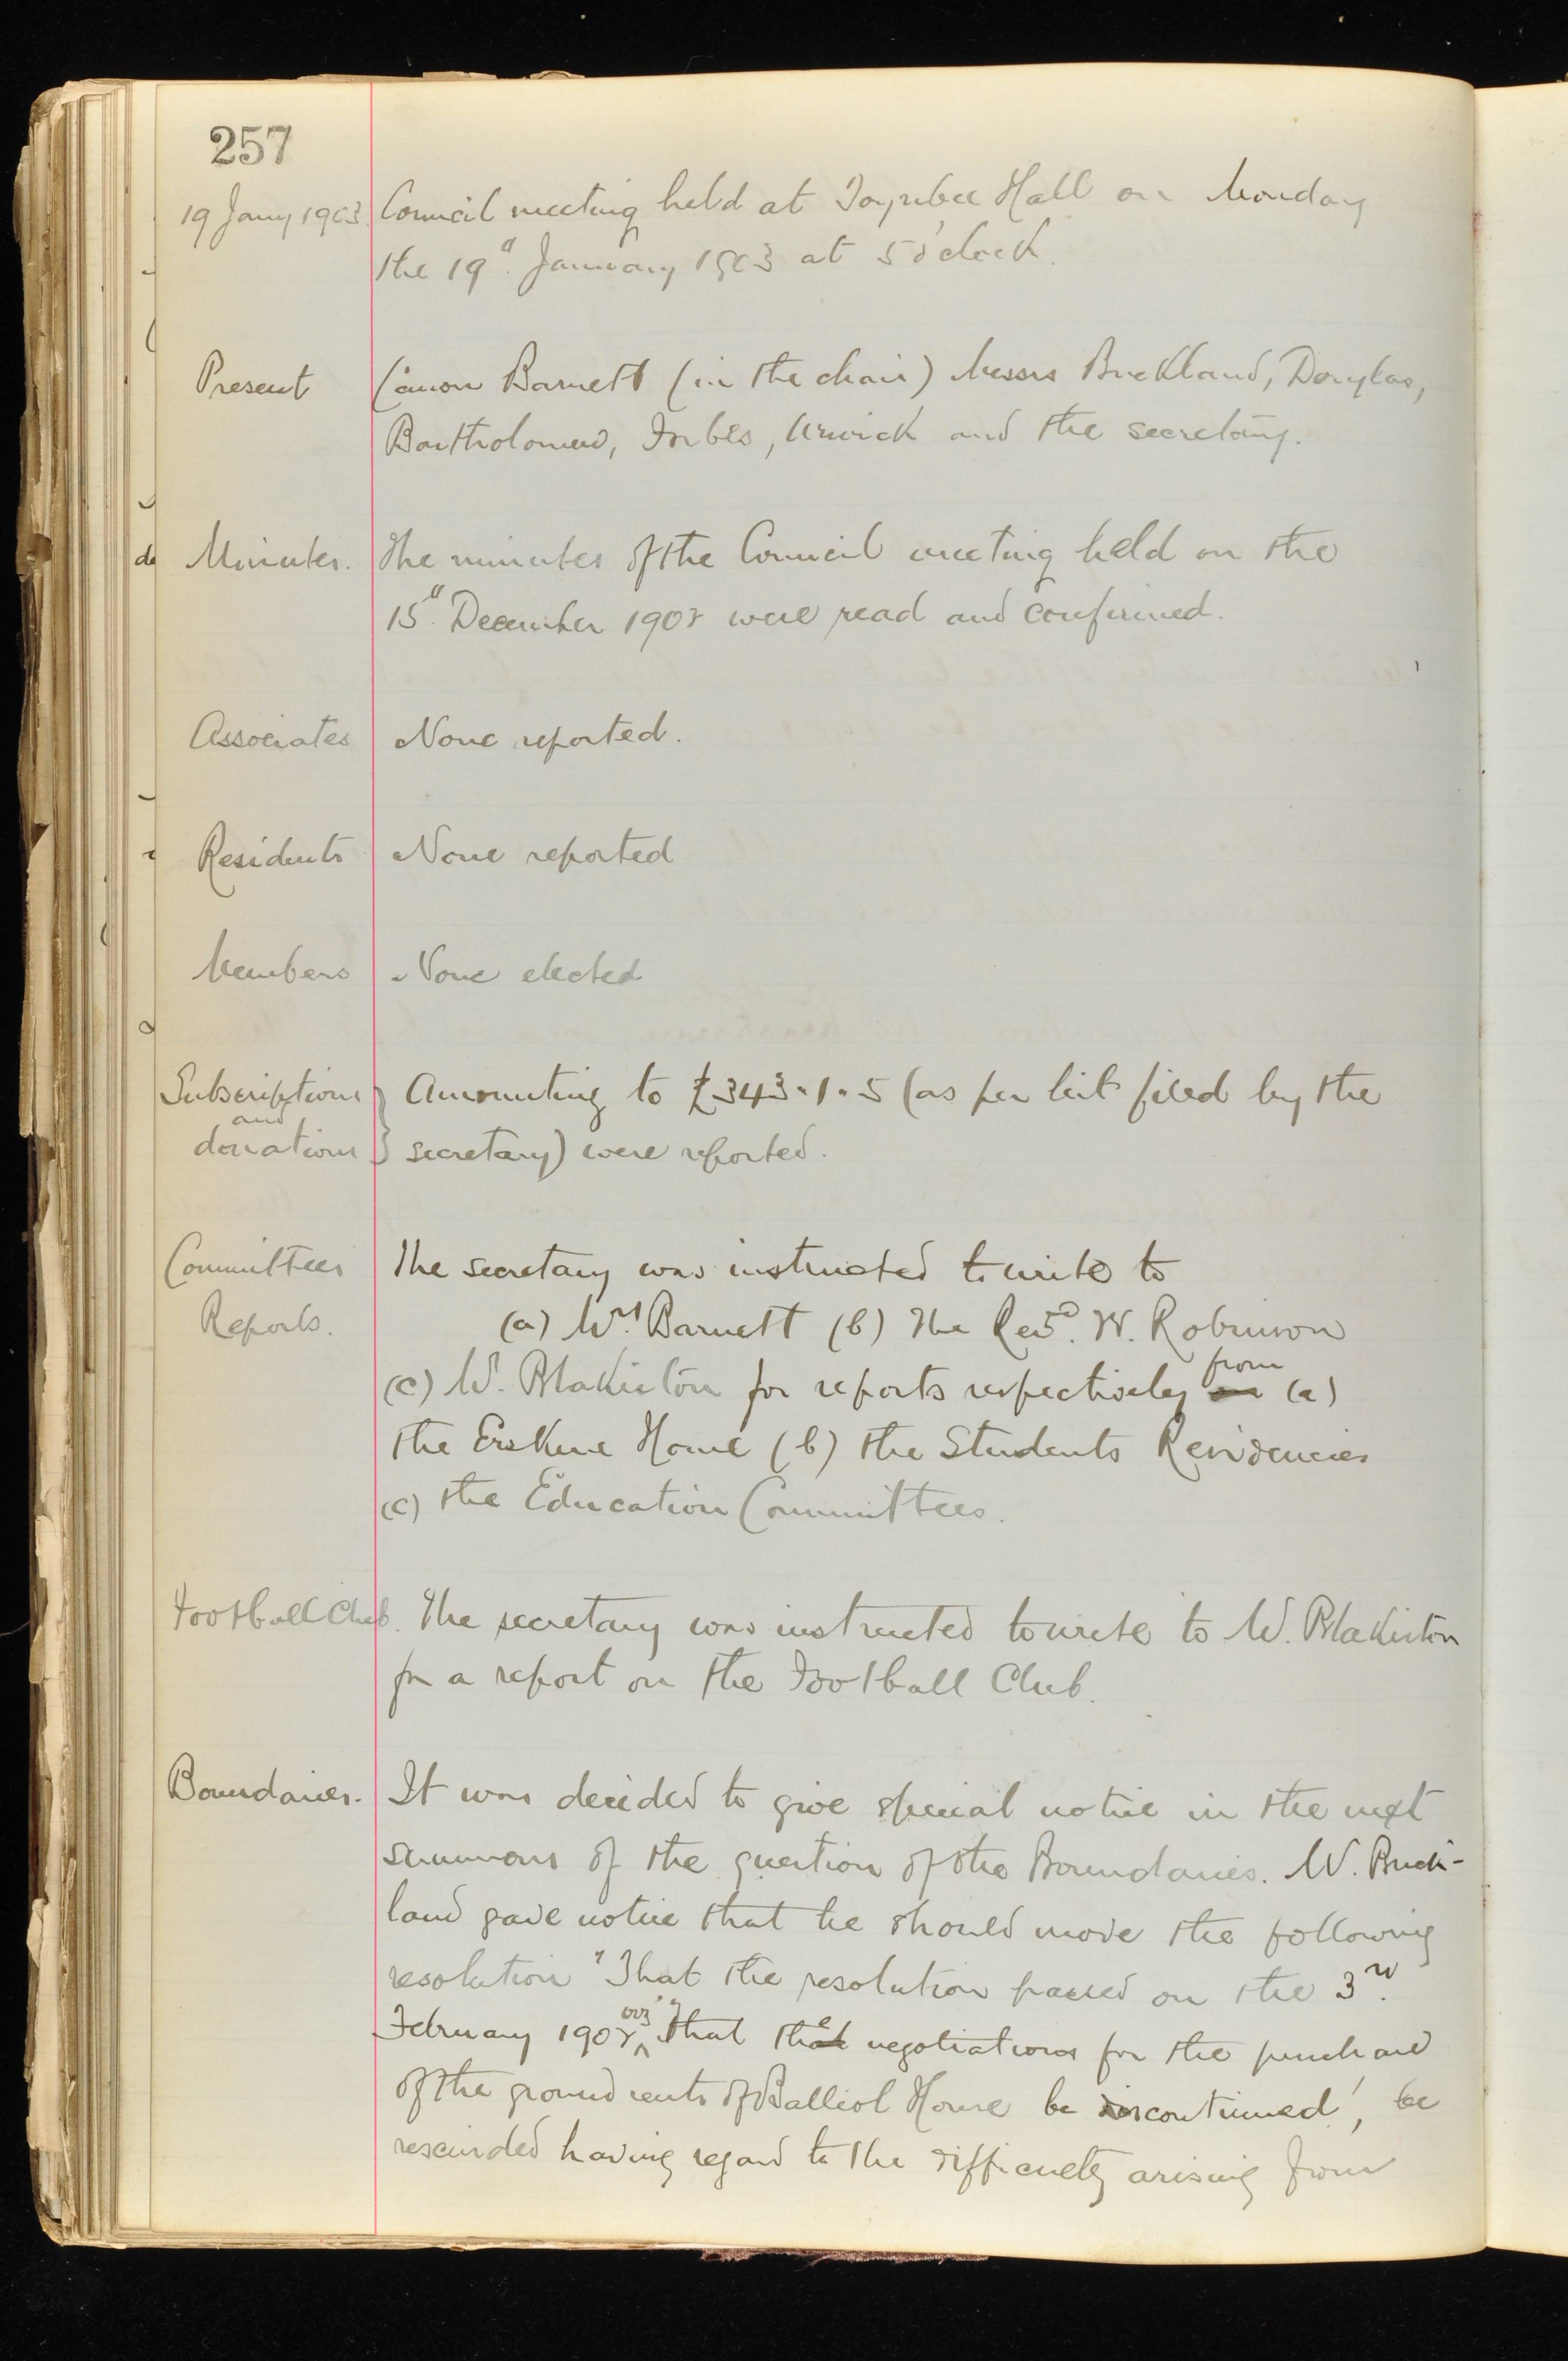 257
19 Jany 1903. Council meeting held at Toynbee Hall on Monday
the 19th. January 1903 at 5 o'clock.
Present Canon Barnett (in the chair) Messrs Buckland, Douglas,
Bartholomew, Forbes, Urwick and the secretary.
Minutes. The minutes of the Council meeting held on the
15th. December 1902 were read and confirmed.
Associates None reported.
Residents None reported
Members None elected
Subscriptions } Amounting to £343.1.5 (as per list filed by the
and
donations } secretary) were reported.
Committees The secretary was instructed to write to
Reports. (a) Mrs. Barnett (b) The Revd. W. Robinson
(c) Mr. Blakiston for reports respectively from on (a)
the Erskine Home (b) the Students Residencies
(c) the Education Committees.
Football Club. The secretary was instructed to write to Mr. Blakiston
for a report on the Football Club.
Boundaries. It was decided to give special notice in the next
summons of the question of the Boundaries. Mr. Buck-
land gave notice that he should move the following
resolution "That the resolution passed on the 3rd.
February 1902, 'that the negotiations for the purchase
of the ground rents of Balliol House be discontinued', be
rescinded having regard to the difficulty arising from